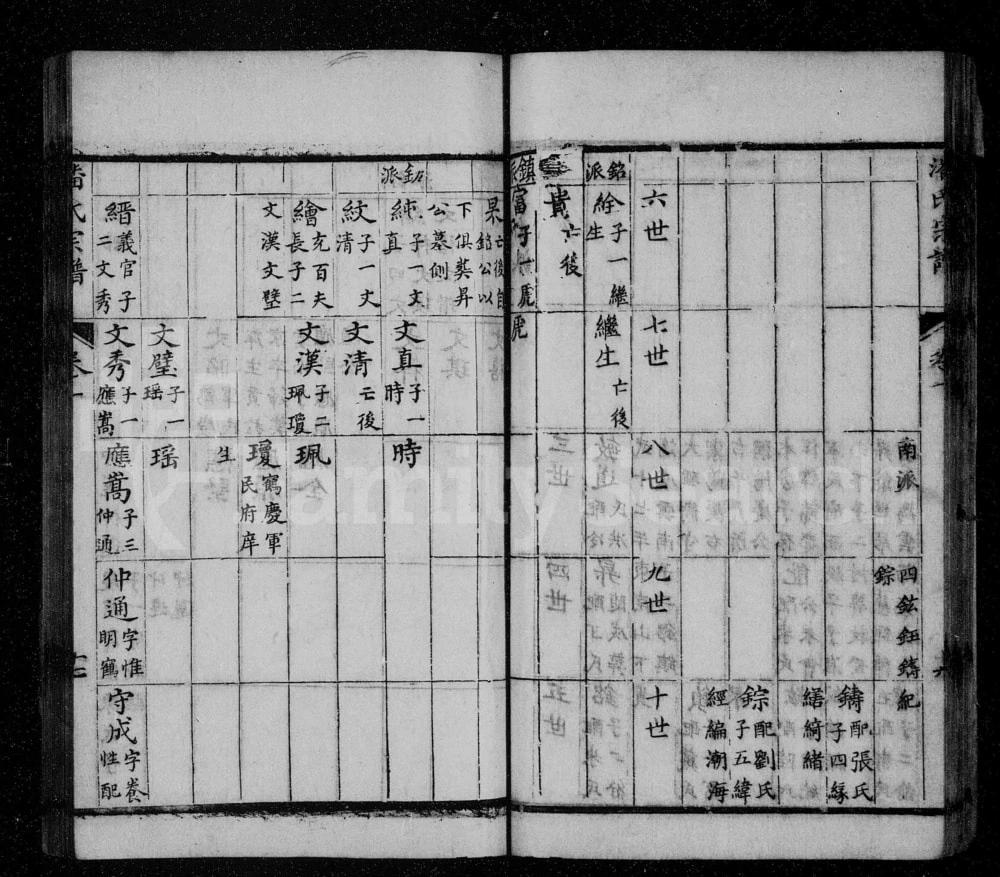 潘氏宗譜
卷一
十六
南派
四鉉鉦鑄
錝
紀
鑄配張氏
子四緣
繕綺緒
錝配劉氏
子五緯
經編潮海
六世
七世
八世
九世
十世
銘派
紟子一繼生
繼生亡後
貴亡後
鎮派
富子一彪
彪
杲亡後自
銘公以
下俱葬昇
公墓側
派
純子一文真
文真子一時
時
紋子一文清
文清亡後
繪充百夫
長子二
文漢文璧
文漢子二
珮瓊
珮
瓊鶴慶軍
民府庠
生
文璧子一瑶
瑶
縉義官子
二文秀
文秀子一
應嵩
應嵩子三
仲通
仲通字惟
明鶴
守成字養
性配
潘氏宗譜
卷一
十七